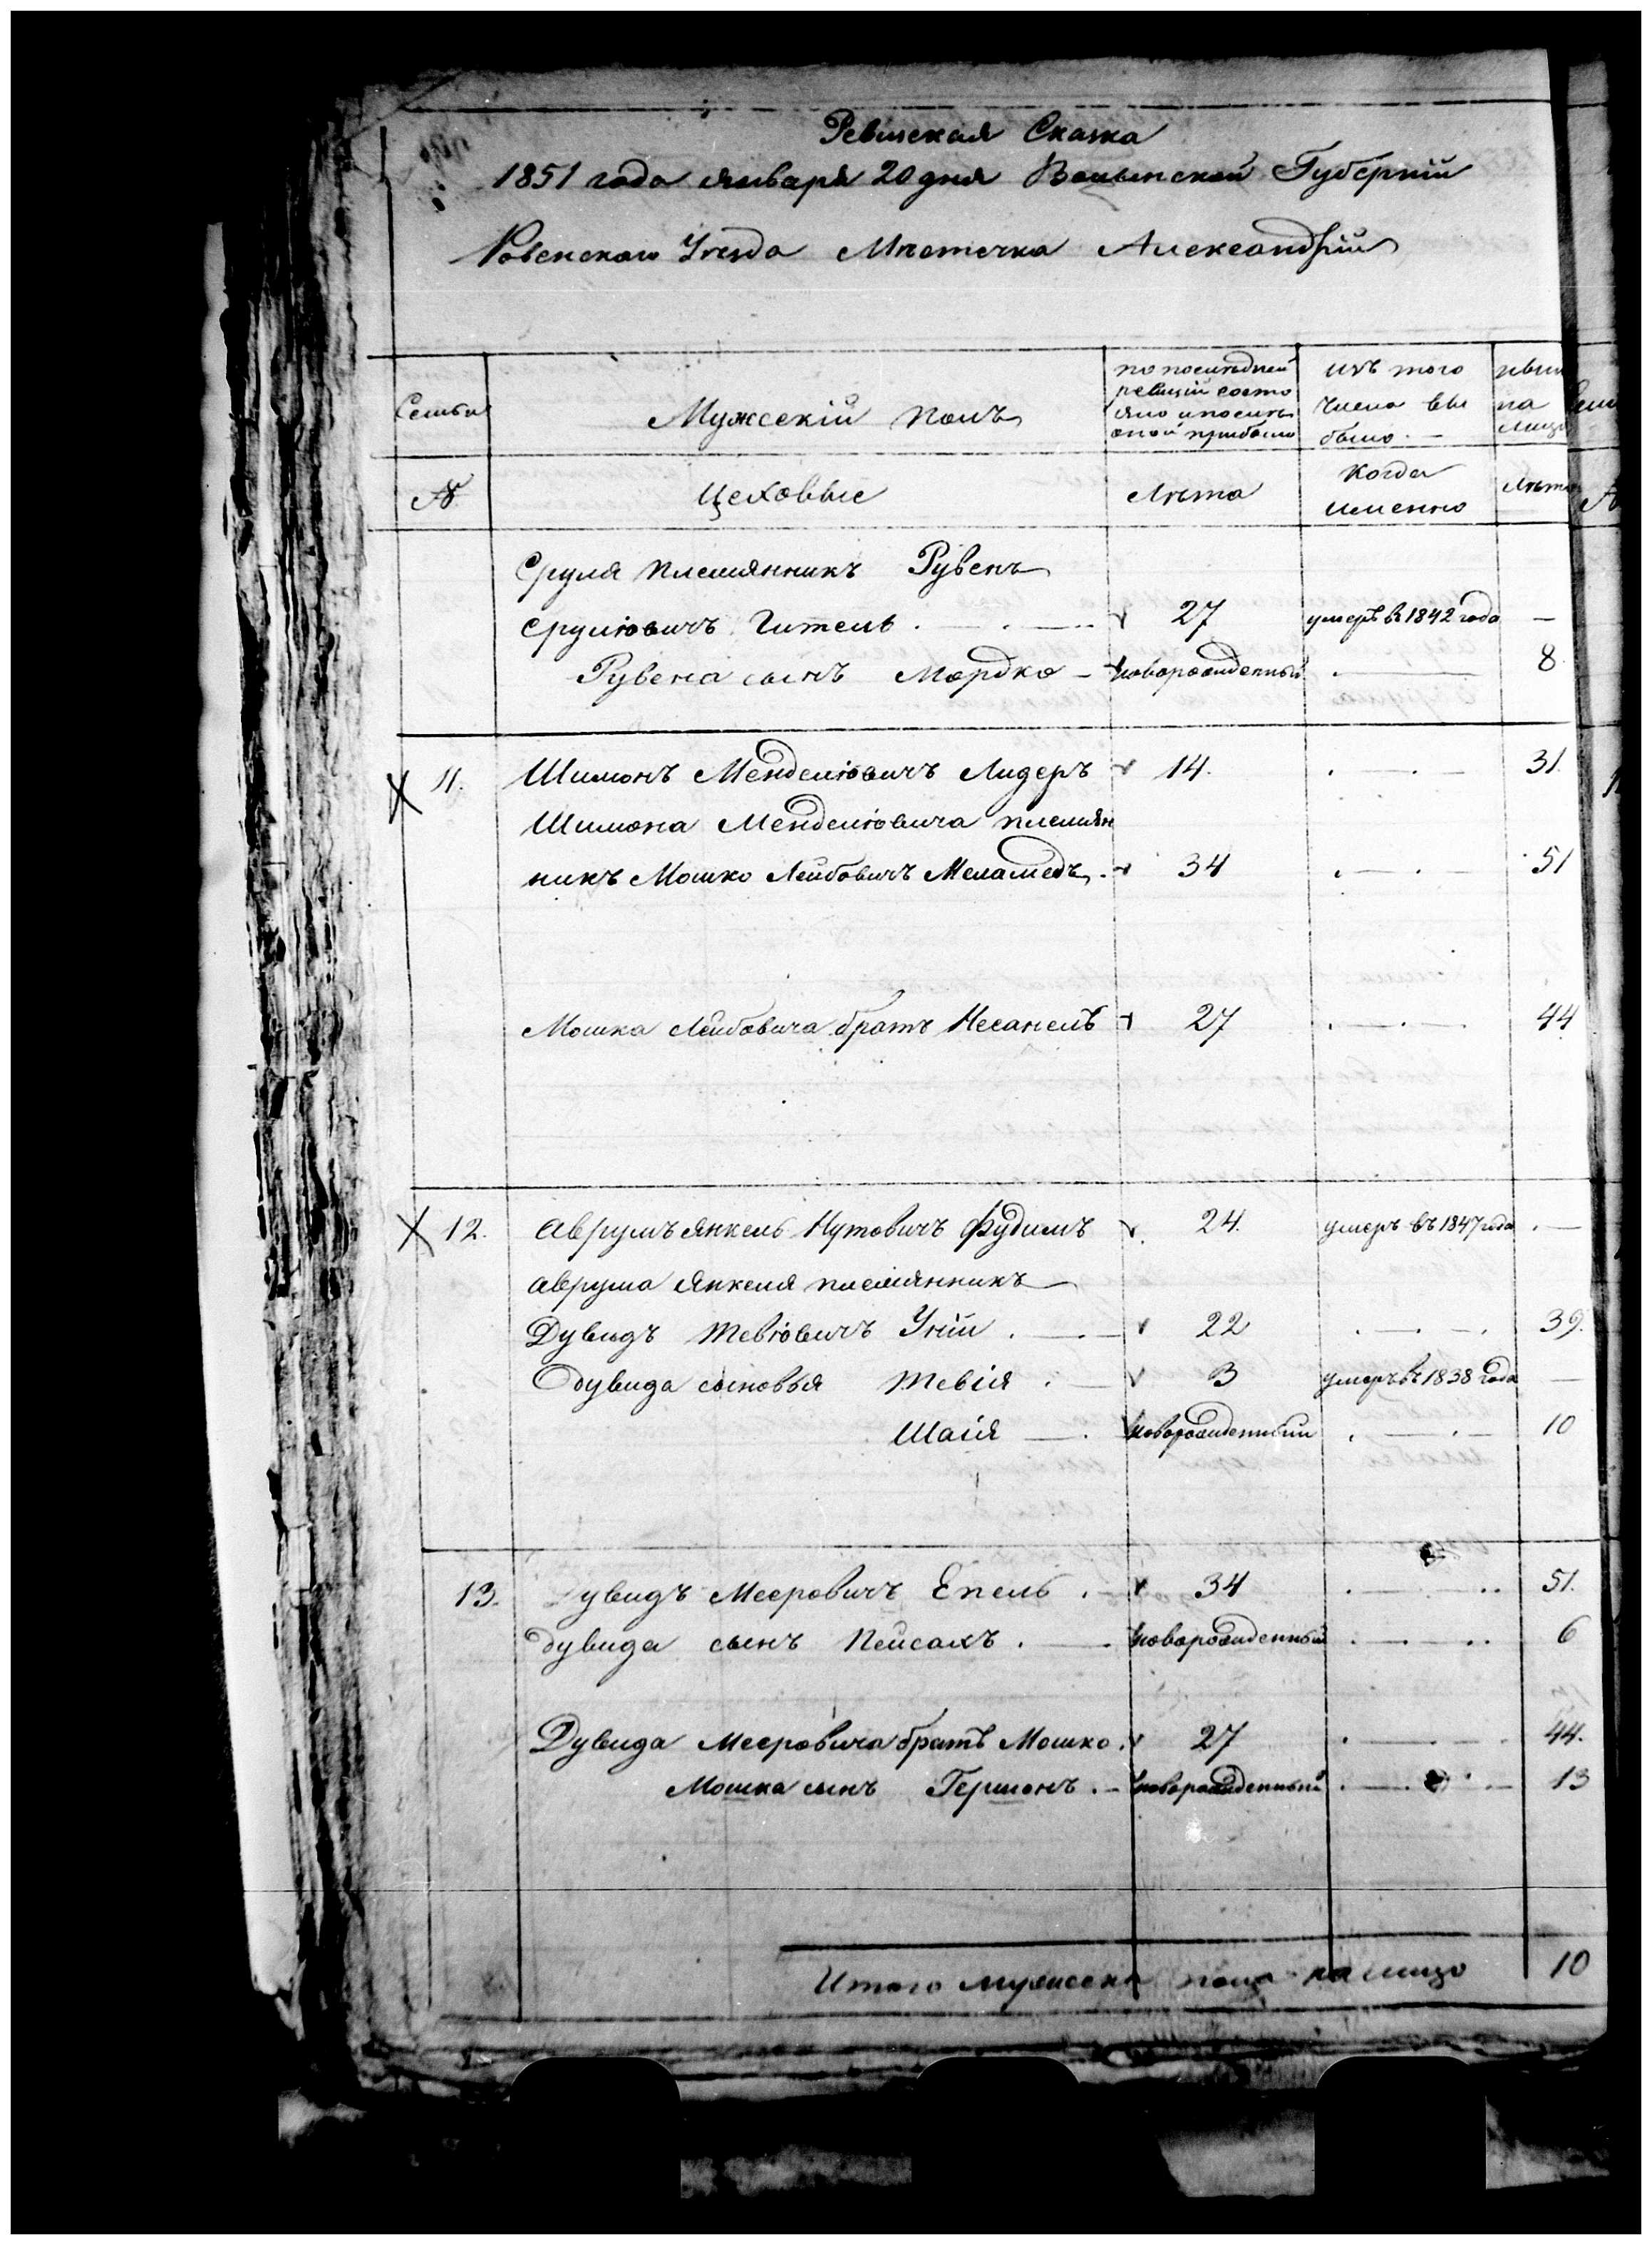 Ревизская Сказка
1851 года января 20 дня Волынской Губерніи
Ровенского Уезда Мѣстечка Александріи
Семьи
Мужескій полъ
по послѣдней ревизіи состояло и послѣ оной прибыло
изъ того числа выбыло
нынѣ на лицо
№
Цеховые
Лѣта
когда именно
Лѣта
Сруля племянникъ Рувенъ
Срулiовичъ Гитель . — . — 27 умеръ в 1842 года —
Рувена сынъ Мордко — новорожденный . — 8
11. Шимонъ Менделiовичъ Лидеръ 14. . — . — 31.
Шимона Менделiовича племян
никъ Мошко Лейбовичъ Меламедъ . 34 . — . — 51
Мошка Лейбовича братъ Несанель 27 . — . — 44
12. Аврумъ Янкель Нутовичъ Фудимъ 24. умеръ въ 1847 года . —
Аврума Янкеля племянникъ
Дувидъ Тевiовичъ Унiи . — 22 . — . — . 39.
Дувида сыновья Тевiя . — 3 умеръ въ 1838 года —
Шаiя — . новорожденный . — . — 10
13. Дувидъ Мееровичъ Епель . — 34 . — . . 51.
Дувида сынъ Пейсахъ . . новорожденный . — . . 6
Дувида Мееровича братъ Мошко . 27 . — . — . 44.
Мошка сынъ Гершонъ . — новорожденный . — . — 13
Итого мужеска пола на лицо 10